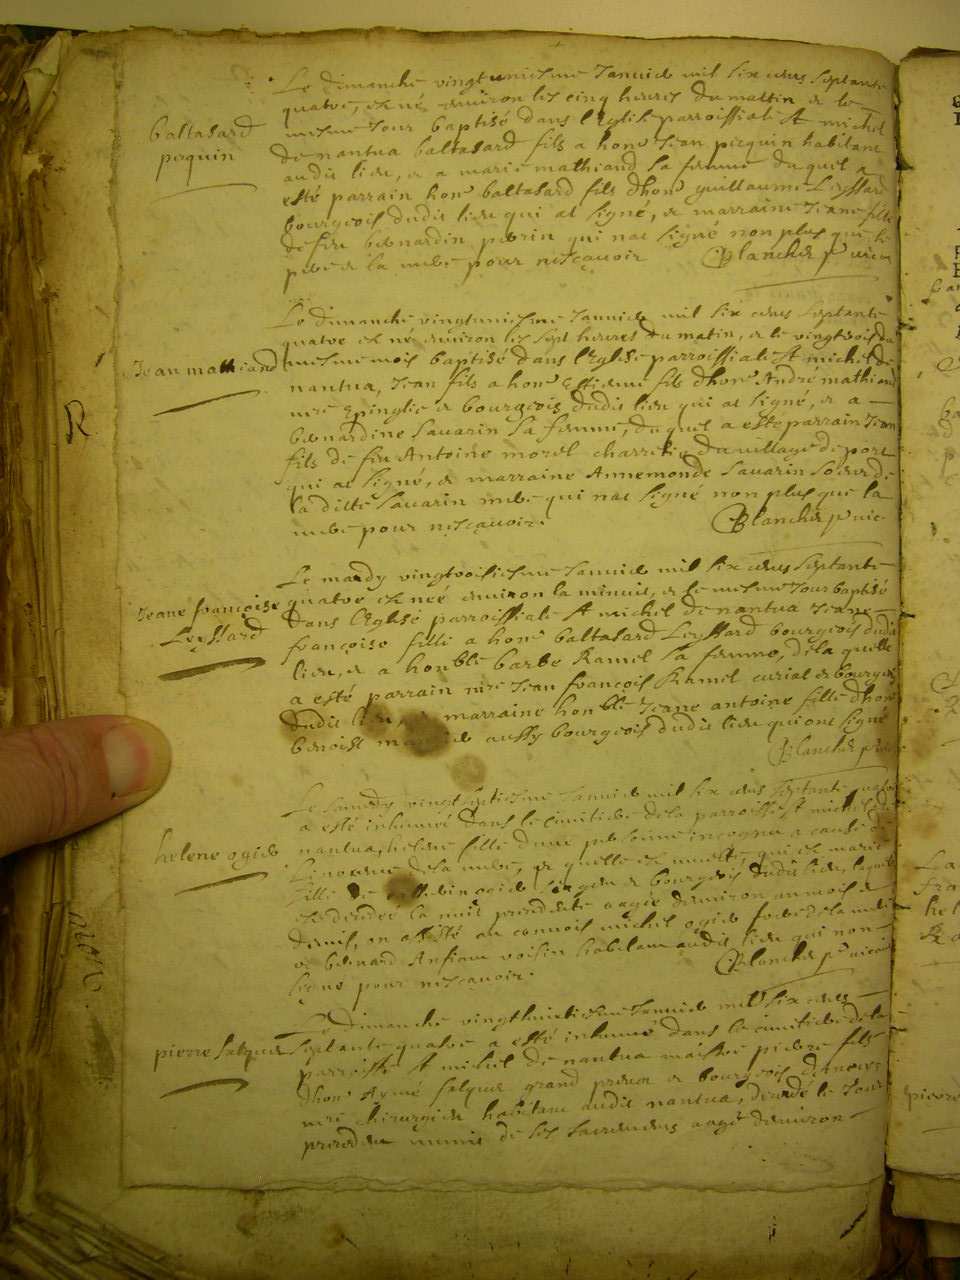 Le dimanche vingtuniesme Janvier mil six cens septante
quatre, est né environ les cinq heures du mattin & le
baltasard
pequin
mesme Jour baptisé dans l'Eglise parroissiale St michel
de nantua baltasard fils a honn Jean pequin habitant
audit lieu, & a marie mathiand sa femme duquel a
esté parrain honn baltasard fils d'honn guillaume Leyssard
bourgeois dudit lieu qui at signé, & marraine Jeane fille
de feu bernardin perrin qui nat signé non plus que le
pere & la mere pour nesçavoir Blanchet
Le dimanche vingtuniesme Janvier mil six cens septante
quatre est né environ les sept heures du matin, & le vingttrois du
Jean mathiand
mesme mois baptisé dans l'Eglise parroissiale St michel de
nantua, Jean fils a honn Estienne fils d'honn André mathiand
mre Epinglier & bourgeois dudit lieu qui at signé, & a
bernardine Savarin sa femme, duquel a esté parrain Jean
fils de feu Antoine morel charretier du village de port
qui at signé, & marraine Annemonde Savarin soeur de
laditte Savarin mere qui nat signé non plus que la
mere pour nesçavoir. Blanchet
R
Le mardy vingttroisiesme Janvier mil six cens septante
quatre est née environ la minuit, & le mesme Jour baptisé
Jeane françoise
Leyssard
dans l'Eglise parroissiale St michel de nantua Jeane
françoise fille a honn baltasard Leyssard bourgeois dudit
lieu, & a honble barbe Ramel sa femme, de la quelle
a esté parrain mre Jean françois Ramel curial & bourgeois
dudit lieu, & marraine honble Jeane antoine fille d'honn
benoist aussy bourgeois dudit lieu qui ont signé
Blanchet
Le samedy vingtseptiesme Janvier mil six cens septante quatre
a esté inhumé dans le cimitiere de la parroisse St michel de
helene ogier
nantua, helene fille d'une personne incognue a cause de
de la mere, & quelle est muette, qui est marie
fille de ogier & bourgeois dudit lieu, laquelle
est decedee la nuit precedente aagee denviron un mois &
demis, on assisté au convois michel ogier frere de la mere
& bernard voisin habitant audit lieu qui non
signe pour nesçavoir. Blanchet
Le dimanche vingthuictiesme Janvier mil six cens
pierre salque
septante quatre a esté inhumé dans le cimitiere de la
parroisse St michel de nantua maistre pierre fils
d'honn Aymé salque grand & bourgeois
mre chirurgien habitant audit nantua, decedé le Jour
precedent munis de ses sacremens aagé denviron